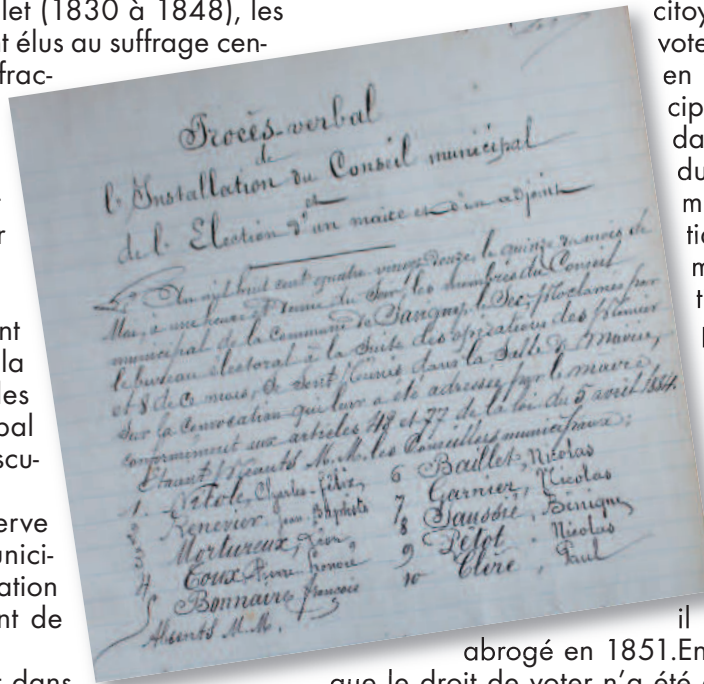 let (1830 à 1848), les
t élus au suffrage cen-
frac-
r
nt
la
les
pal
scu-
erve
unici-
ation
nt de
dans
Procès-verbal
de
l'Installation du Conseil municipal
et
de l'Election d'un maire et d'un adjoint
L'An mil huit cent quatre vingt douze, le quinze du mois de
Mai, a une heure et demie du Soir, les membres du Conseil
municipal de la Commune de le Sec, Proclamés par
le bureau électoral à la Suite des opérations des Premier
et 8 de Ce mois, Se Sont Réunis dans la Salle de Mairie,
Sur la Convocation qui leur a été adressée par le maire,
conformément aux articles 48 et 77 de la loi du 5 avril 1884.
Etaient Présents M.M. les Conseillers municipaux:
1. Charles-Félix,
Renevier, Jean-Baptiste
Mortureux, Léon
4 Coux Pierre Honoré
5 Bonnaire françois
6 Baillet, Nicolas
7 Garnier, Nicolas
8 Saussié, Bénigne
9 Petot, Nicolas
10 Clère, Paul
Absents M.M.
citoy
vote
en
cip
da
du
m
tio
m
t
il
abrogé en 1851.En
que le droit de voter n'a été